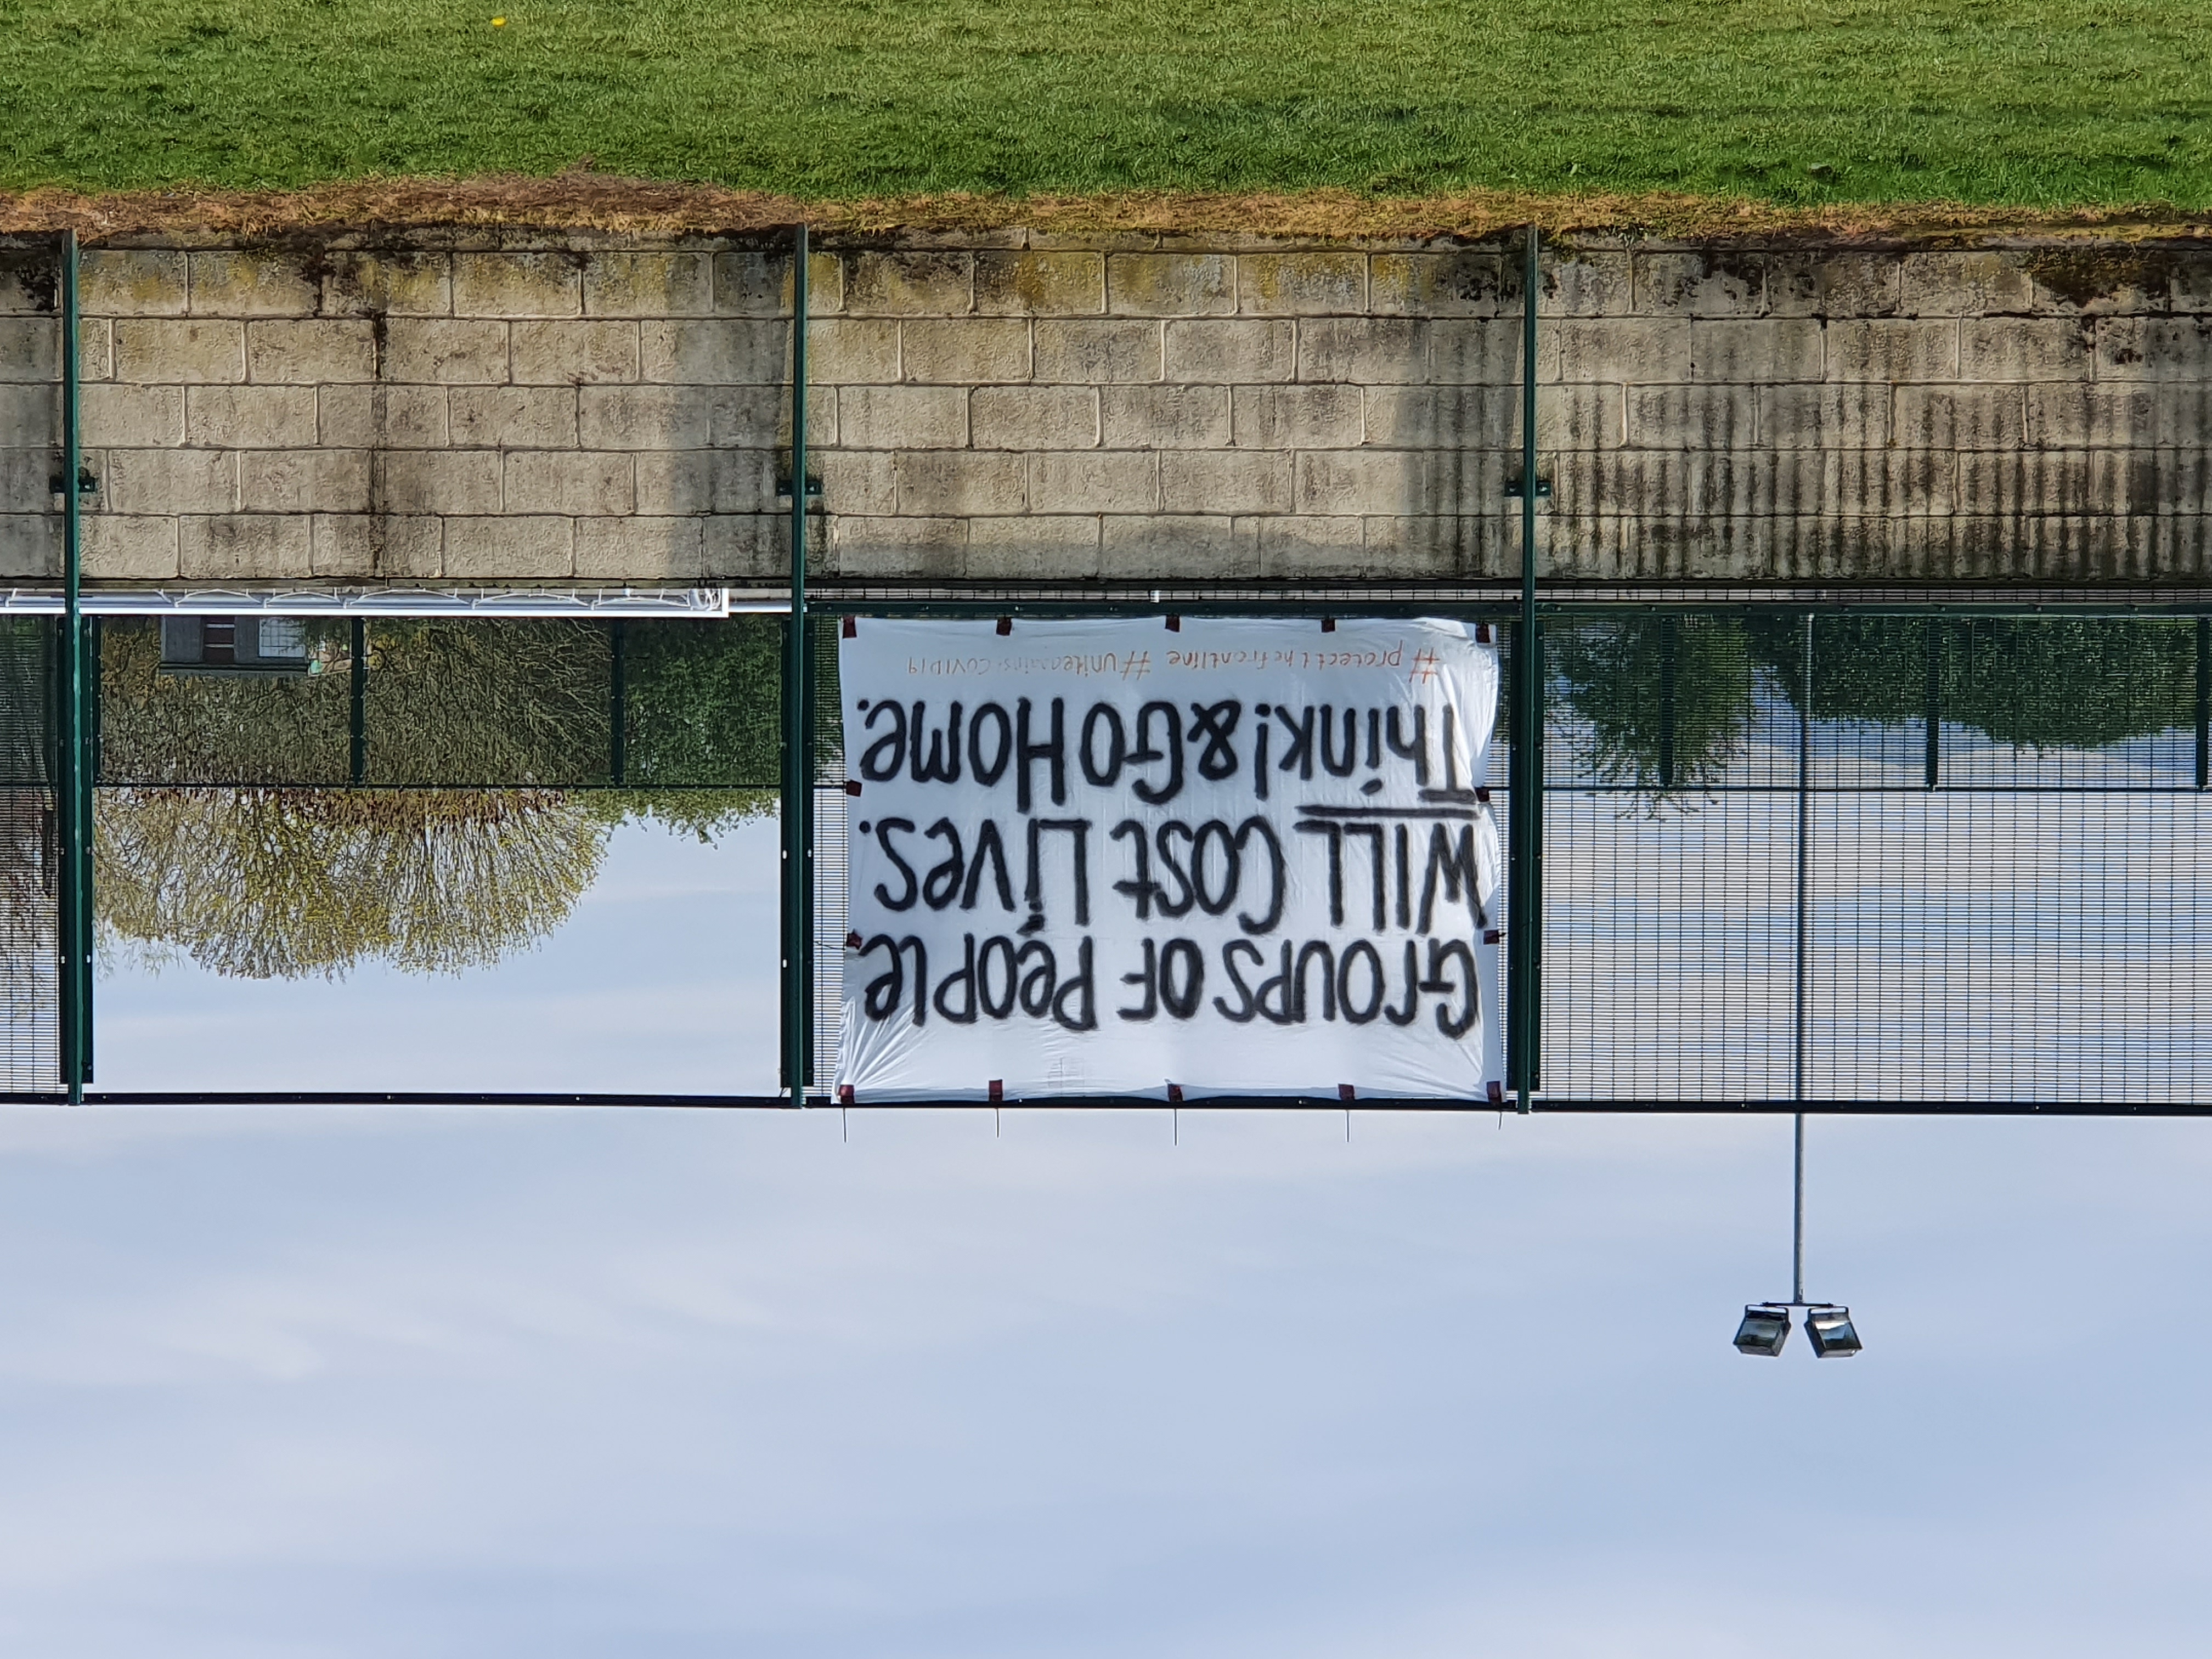 Groups of People
WILL Cost Lives.
Think! & Go Home.
#protectthefrontline #uniteagainstCOVID19